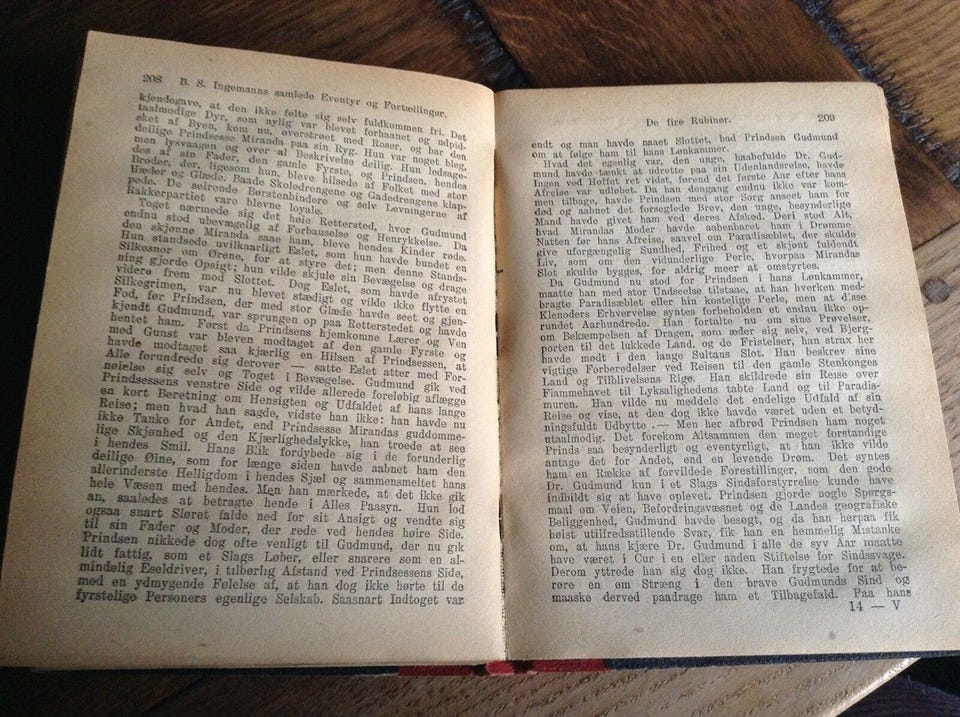 208 B. S. Ingemanns samlede Eventyr og Fortællinger.
kjendegave, at den ikke følte sig selv fuldkommen fri. Det
taalmodige Dyr, som nylig var blevet forhaanet og udpid-
sket af Byen, kom nu, overstrøet med Roser, og bar den
deilige Prindsesse Miranda paa sin Ryg. Hun var noget bleg,
men lysvaagen og over al Beskrivelse deilig. Hun ledsage-
des af sin Fader, den gamle Fyrste, og Prindsen, hendes
Broder, der, ligesom hun, bleve hilsede af Folket med stor
Hæder og Glæde. Baade Skoledrengene og Gadedrengene klap-
pede. De seirende Børstenbindere og selv Levningerne af
Rakkerpartiet vare blevne loyale.
Toget nærmede sig det høie Rettersted, hvor Gudmund
endnu stod ubevægelig af Forbauselse og Henrykkelse. Da
den skjønne Miranda saae ham, bleve hendes Kinder røde.
Hun standsede uvilkaarligt Eslet, som hun havde bundet en
Silkesnor om Ørene, for at styre det; men denne Stands-
ning gjorde Opsigt; hun vilde skjule sin Bevægelse og drage
videre frem mod Slottet. Dog Eslet, som havde afrystet
Silkegrimen, var nu blevet stædigt og vilde ikke flytte en
Fod, før Prindsen, der med stor Glæde havde seet og gjen-
kjendt Gudmund, var sprungen op paa Retterstedet og havde
hentet ham. Først da Prindsens hjemkomne Lærer og Ven
med Gunst var bleven modtaget af den gamle Fyrste og
havde modtaget saa kjærlig en Hilsen af Prindsessen, at
Alle forundrede sig derover — satte Eslet atter med For-
nøielse sig selv og Toget i Bevægelse. Gudmund gik ved
Prindsessens venstre Side og vilde allerede foreløbig aflægge
en kort Beretning om Hensigten og Udfaldet af hans lange
Reise; men hvad han sagde, vidste han ikke: han havde nu
ikke Tanke for Andet, end Prindsesse Mirandas guddomme-
lige Skjønhed og den Kjærlighedslykke, han troede at see
i hendes Smil. Hans Blik fordybede sig i de forunderlig
deilige Øine, som for længe siden havde aabnet ham den
allerinderste Helligdom i hendes Sjæl og sammensmeltet hans
hele Væsen med hendes. Men han mærkede, at det ikke gik
an, saaledes at betragte hende i Alles Paasyn. Hun lod
ogsaa snart Sløret falde ned for sit Ansigt og vendte sig
til sin Fader og Moder, der rede ved hendes høire Side.
Prindsen nikkede dog ofte venligt til Gudmund, der nu gik
lidt fattig, som et Slags Løber, eller snarere som en al-
mindelig Eseldriver, i tilbørlig Afstand ved Prindsessens Side,
med en ydmygende Følelse af, at han dog ikke hørte til de
fyrstelige Personers egenlige Selskab. Saasnart Indtoget var
De fire Rubiner. 209
endt og man havde naaet Slottet, bad Prindsen Gudmund
om at følge ham til hans Lønkammer.
Hvad det egenlig var, den unge, haabefulde Dr. Gud-
mund havde tænkt at udrette paa sin Udenlandsreise, havde
Ingen ved Hoffet ret vidst, førend det første Aar efter hans
Afreise var udløbet. Da han dengang endnu ikke var kom-
men tilbage, havde Prindsen med stor Sorg anseet ham for
død og aabnet det forseglede Brev, den unge, besynderlige
Mand havde givet ham ved deres Afskod. Deri stod Alt,
hvad Mirandas Moder havde aabenbaret ham i Drømme
Natten før hans Afreise, saavel om Paradisæblet, der skulde
give uforgængelig Sundhed, Frihed og et skjønt fuldendt
Liv, som om den vidunderlige Perle, hvorpaa Mirandas
Slot skulde bygges, for aldrig meer at omstyrtes.
Da Gudmund nu stod for Prindsen i hans Lønkammer,
maatte han med stor Undseelse tilstaae, at han hverken med-
bragte Paradisæblet eller hin kostelige Perle, men at disse
Klenoders Erhvervelse syntes forbeholdet et endnu ikke op-
rundet Aarhundrede. Han fortalte nu om sine Prøvelser,
om Bekæmpelsen af Dragen, som æder sig selv, ved Bjerg-
porten til det lukkede Land, og de Fristelser, han strax her
havde mødt i den lange Sultans Slot. Han beskrev sine
vigtige Forberedelser ved Reisen til den gamle Stenkonges
Land og Tilblivelsens Rige. Han skildrede sin Reise over
Flammehavet til Lyksalighedens tabte Land og til Paradis-
muren. Han vilde nu meddele det endelige Udfald af sin
Reise og vise, at den dog ikke havde været uden et betyd-
ningsfuldt Udbytte. — Men her afbrød Prindsen ham noget
utaalmodig. Det forekom Altsammen den meget forstandige
Prinds saa besynderligt og eventyrligt, at han ikke vilde
antage det for Andet, end en levende Drøm. Det syntes
ham en Række af forvildede Forestillinger, som den gode
Dr. Gudmund kun i et Slags Sindsforstyrrelse kunde have
indbildt sig at have oplevet. Prindsen gjorde nogle Spørgs-
maal om Veien, Befordringsvæsnet og de Landes geografiske
Beliggenhed, Gudmund havde besøgt, og da han herpaa fik
høist utilfredsstillende Svar, fik han en hemmelig Mistanke
om, at hans kjære Dr. Gudmund i alle de syv Aar maatte
have været i Cur i en eller anden Stiftelse for Sindssvage.
Derom yttrede han sig dog ikke. Han frygtede for at be-
røre en øm Stræng i den brave Gudmunds Sind og
maaske derved paadrage ham et Tilbagefald. Paa hans
14 — V